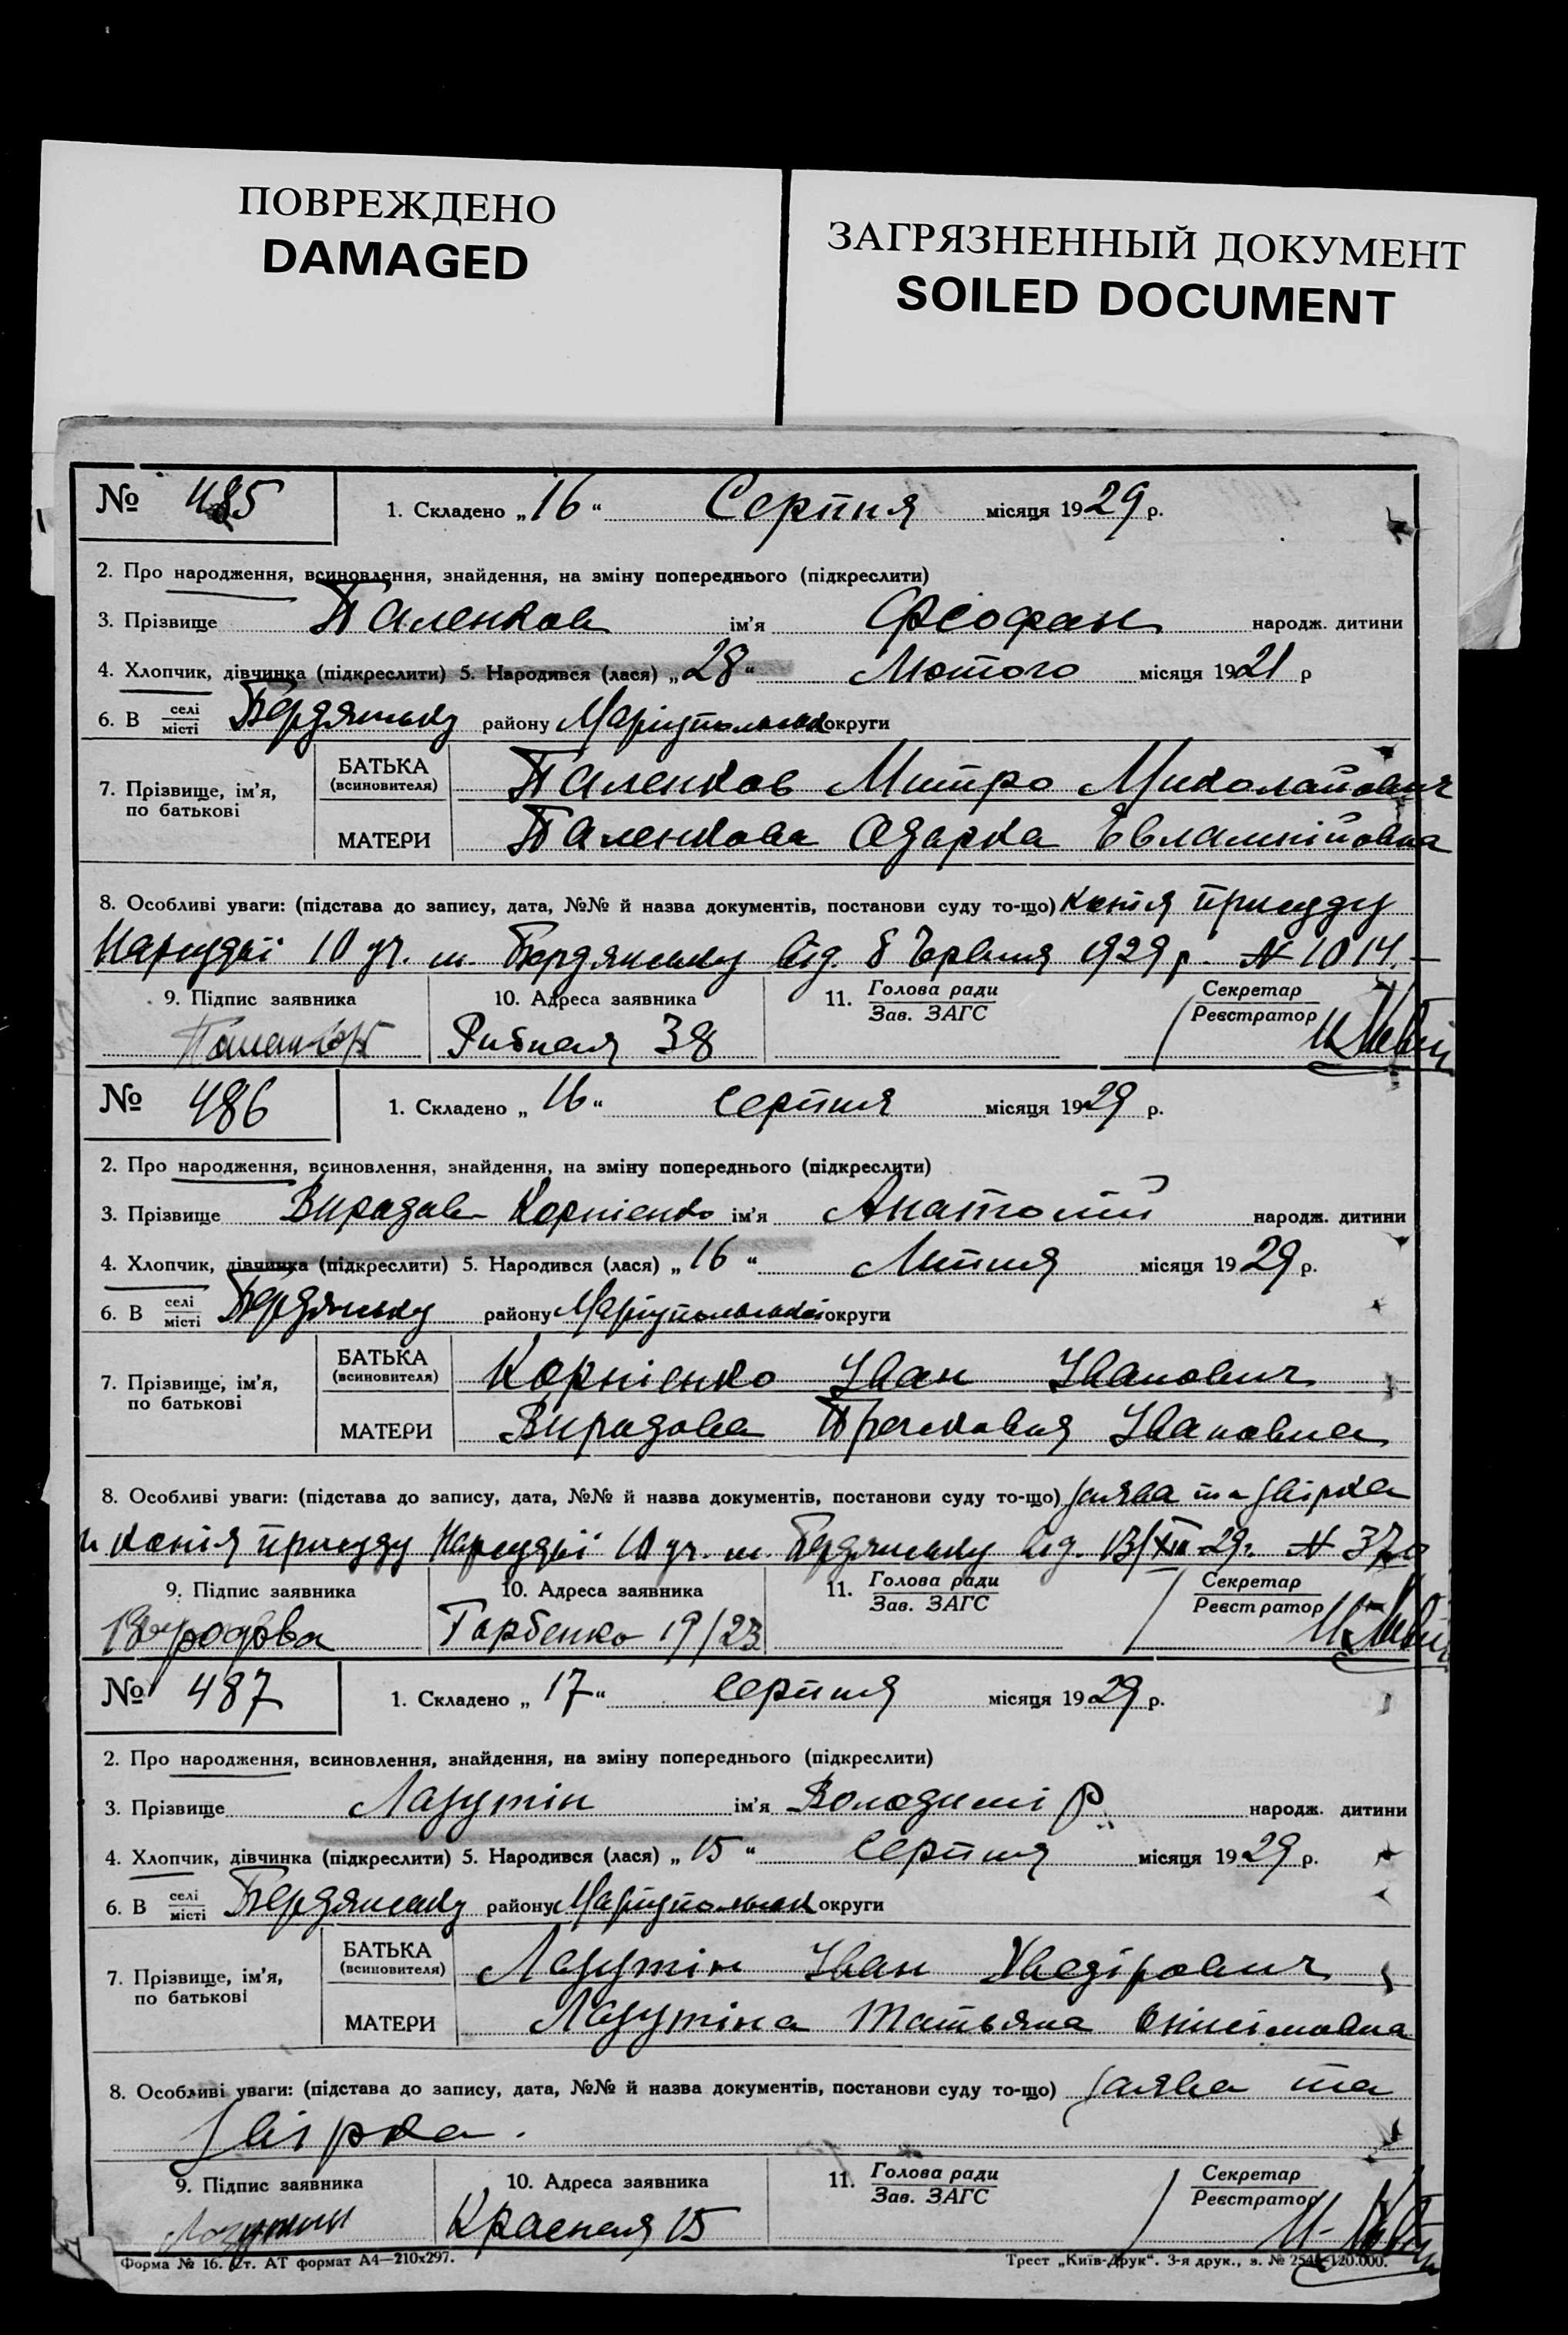 ПОВРЕЖДЕНО
DAMAGED
ЗАГРЯЗНЕННЫЙ ДОКУМЕНТ
SOILED DOCUMENT
№ 485 1. Складено „16“ Серпня місяця 1929 р.
2. Про народження, всиновлення, знайдення, на зміну попереднього (підкреслити)
3. Прізвище Паленков ім'я Феофан народж. дитини
4. Хлопчик, дівчинка (підкреслити) 5. Народився (лася) „28“ Лютого місяця 1921 р
6. В селі/місті Бердянську району Маріупольськ округи
7. Прізвище, ім'я, по батькові
БАТЬКА (всиновителя) Паленков Митро Миколайович
МАТЕРИ Паленкова Одарка Евлампійовна
8. Особливі уваги: (підстава до запису, дата, №№ й назва документів, постанови суду то-що) копія присуду
Нарсудьї 10 уч. м. Бердянську від 8 Червня 1929 р. № 1014.—
9. Підпис заявника 10. Адреса заявника 11. Голова ради/Зав. ЗАГС Секретар/Реєстратор
Рибная 38
№ 486 1. Складено „16“ серпня місяця 1929 р.
2. Про народження, всиновлення, знайдення, на зміну попереднього (підкреслити)
3. Прізвище Вирадов Корніенко ім'я Анатолій народж. дитини
4. Хлопчик, дівчинка (підкреслити) 5. Народився (лася) „16“ Липня місяця 1929 р.
6. В селі/місті Бердянську району Маріупольської округи
7. Прізвище, ім'я, по батькові
БАТЬКА (всиновителя) Корніенко Іван Іванович
МАТЕРИ Вирадова Прасковия Івановна
8. Особливі уваги: (підстава до запису, дата, №№ й назва документів, постанови суду то-що) заява та звірка
и копія присуду Нарсудьї 10 уч. м. Бердянську від 29.
9. Підпис заявника 10. Адреса заявника 11. Голова ради/Зав. ЗАГС Секретар/Реєстратор
Горбенко 19/23
№ 487 1. Складено „17“ серпня місяця 1929 р.
2. Про народження, всиновлення, знайдення, на зміну попереднього (підкреслити)
3. Прізвище Лазутін ім'я Володимір народж. дитини
4. Хлопчик, дівчинка (підкреслити) 5. Народився (лася) „15“ серпня місяця 1929 р.
6. В селі/місті Бердянську району Маріупольськ округи
7. Прізвище, ім'я, по батькові
БАТЬКА (всиновителя) Лазутін Іван
МАТЕРИ Лазутіна Татьяна Онисімовна
8. Особливі уваги: (підстава до запису, дата, №№ й назва документів, постанови суду то-що) заява та
звірка.
9. Підпис заявника 10. Адреса заявника 11. Голова ради/Зав. ЗАГС Секретар/Реєстратор
Лазутин Красная 15
Форма № 16. Ст. АТ формат А4—210х297. Трест „Київ-Друк“. 3-я друк., з. № 120.000.